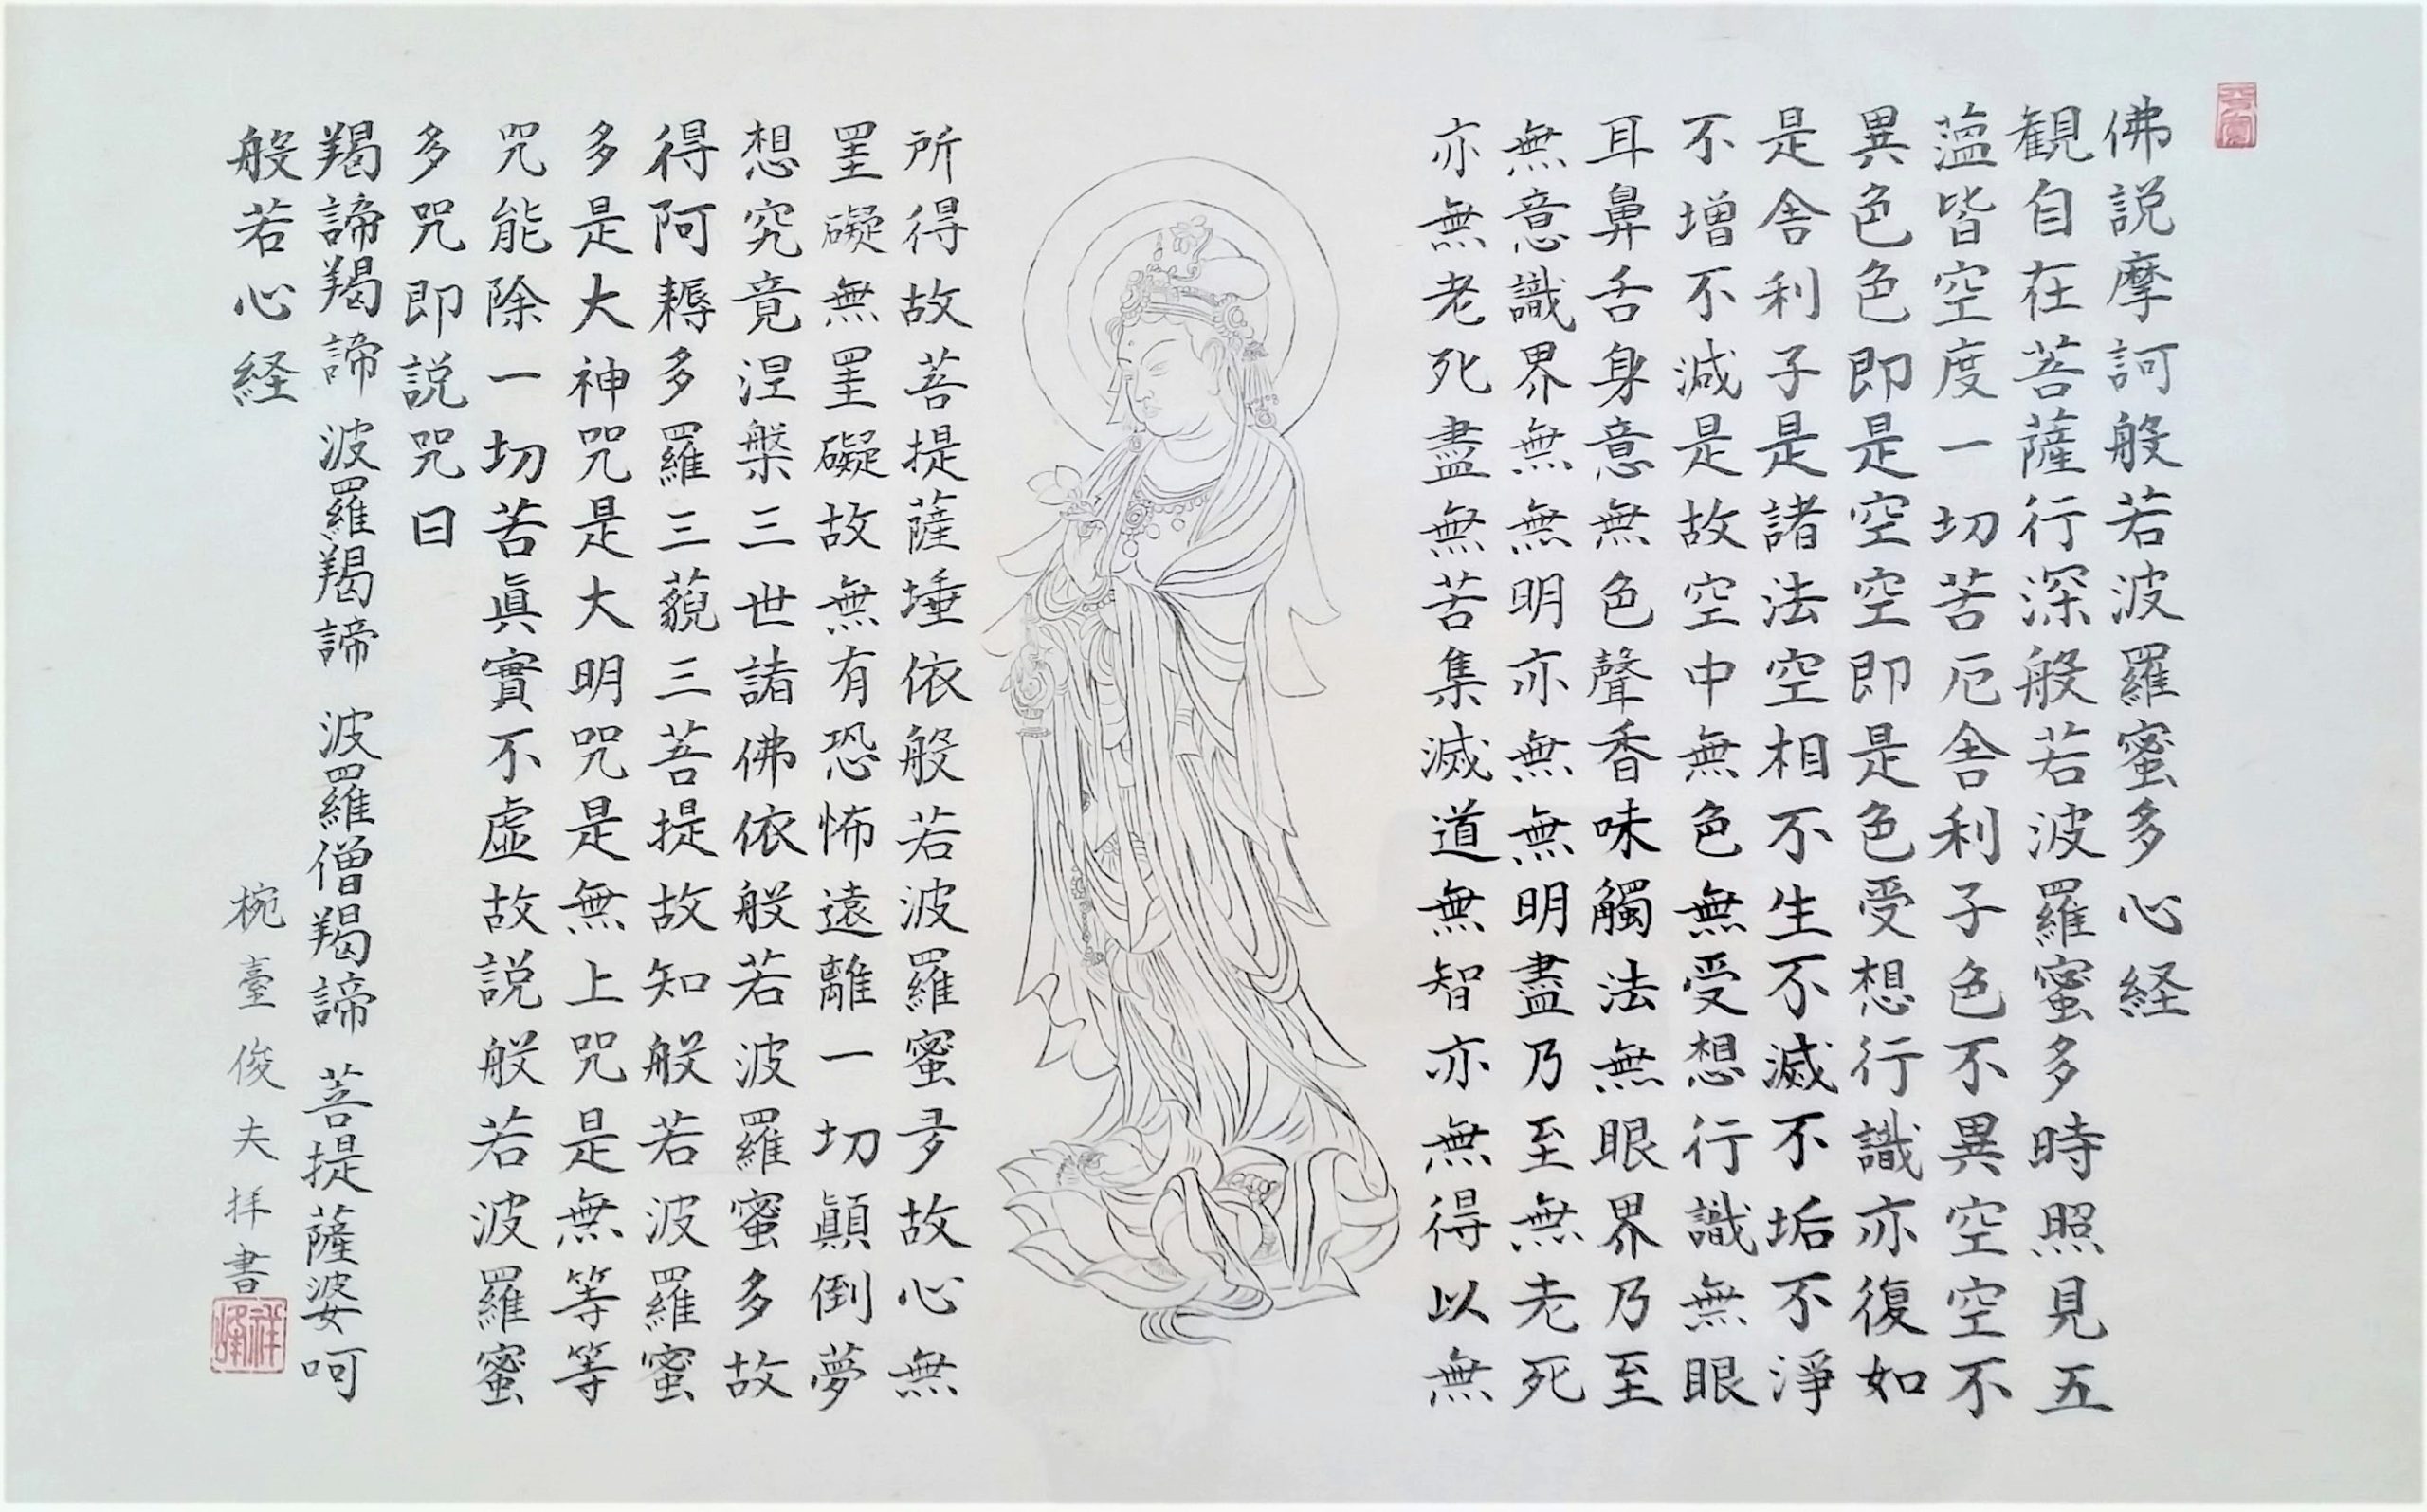 佛説摩訶般若波羅蜜多心経
観自在菩薩行深般若波羅蜜多時照見五
薀皆空度一切苦厄舎利子色不異空空不
異色色即是空空即是色受想行識亦復如
是舎利子是諸法空相不生不滅不垢不淨
不増不減是故空中無色無受想行識無眼
耳鼻舌身意無色聲香味觸法無眼界乃至
無意識界無無明亦無無明盡乃至無老死
亦無老死盡無苦集滅道無智亦無得以無
所得故菩提薩埵依般若波羅蜜多故心無
罣礙無罣礙故無有恐怖遠離一切顚倒夢
想究竟涅槃三世諸佛依般若波羅蜜多故
得阿耨多羅三藐三菩提故知般若波羅蜜
多是大神咒是大明咒是無上咒是無等等
咒能除一切苦眞實不虚故説般若波羅蜜
多咒即説咒曰
羯諦羯諦 波羅羯諦 波羅僧羯諦 菩提薩婆呵
般若心経
椀臺俊夫拝書